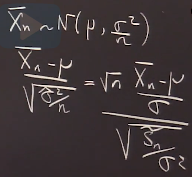 X̄ₙ ~ N(μ, σ²/n)
(X̄ₙ - μ)/√(σ²/n) = √n (X̄ₙ - μ)/σ
√(Sₙ/σ²)